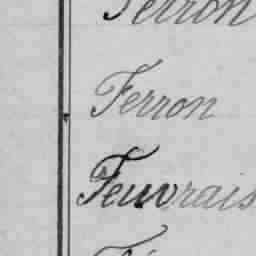 Ferron
Ferron
Feuvrais